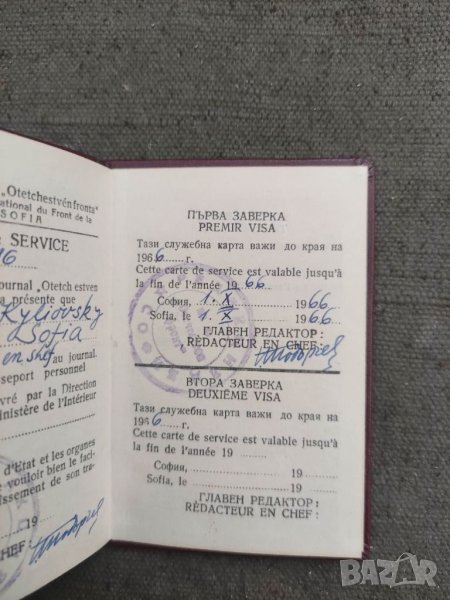 „Otetchestvén fronta"
ational du Front de la
SOFIA
SERVICE
16
ournal „Otetch estven
a présente que
Kyliovsky
Sofia
en chef au journal.
sseport personnel
vré par la Direction
Ministère de l'Intérieur
d'Etat et les organes
vouloir bien le faci-
issement de son tra-
19
CHEF:
ПЪРВА ЗАВЕРКА
PREMIR VISA
Тази служебна карта важи до края на
1966......г.
Cette carte de service est valable jusqu'à
la fin de l'année 1966
София, 1. X 1966
Sofia, le 1. X 1966
ГЛАВЕН РЕДАКТОР:
RÉDACTEUR EN CHEF:
ВТОРА ЗАВЕРКА
DEUXIÈME VISA
Тази служебна карта важи до края на
1966......г.
Cette carte de service est valable jusqu'à
la fin de l'année 19
София, 19
Sofia, le 19
ГЛАВЕН РЕДАКТОР:
RÉDACTEUR EN CHEF:
BAZAR.BG